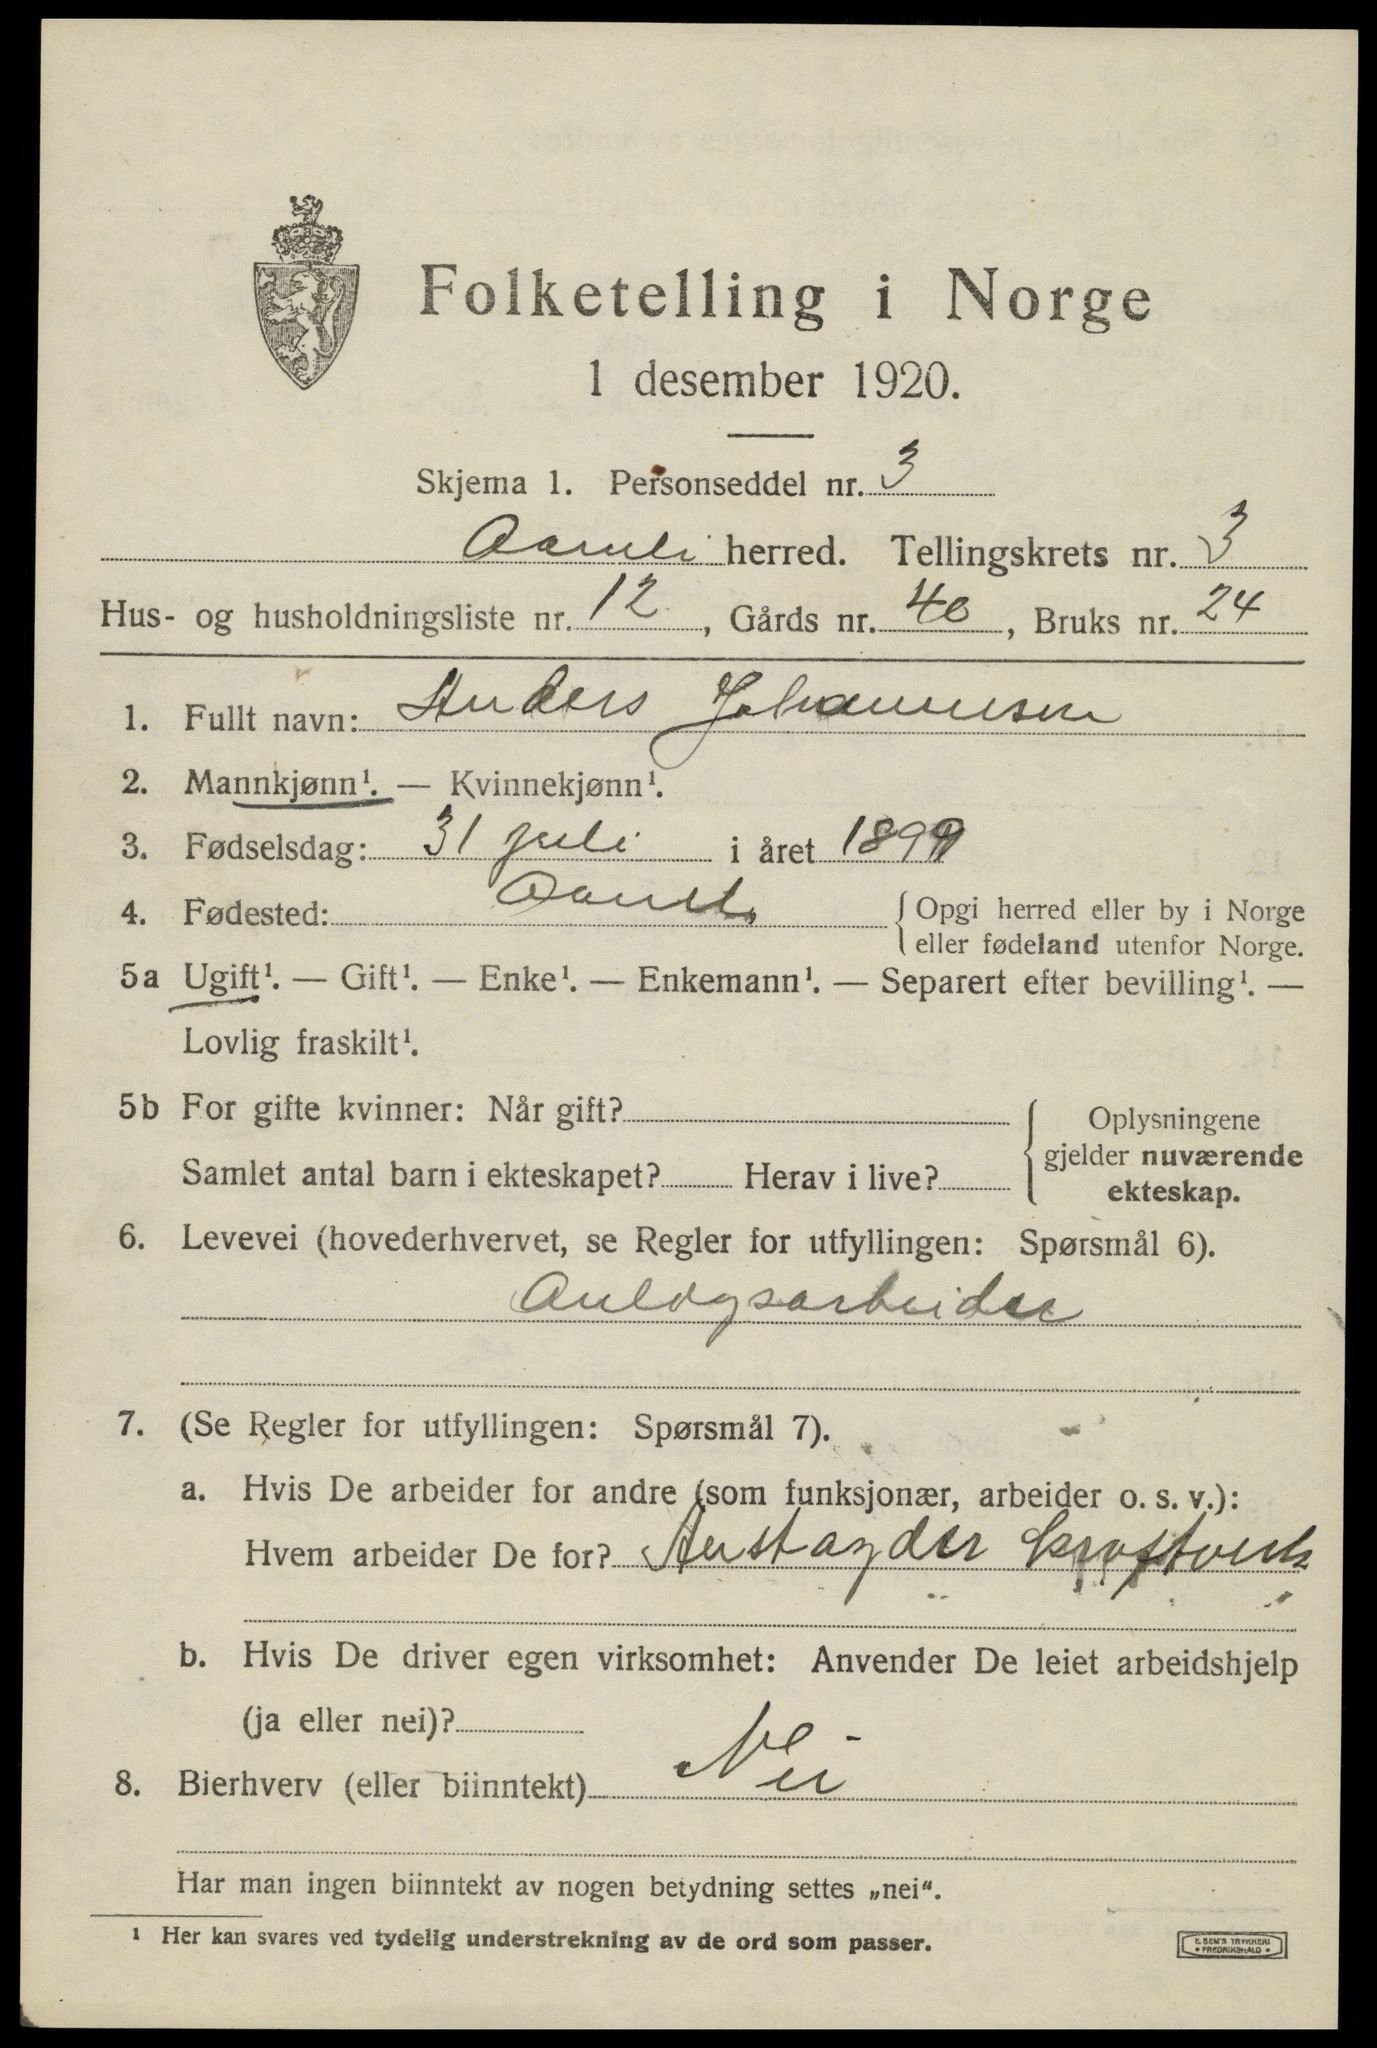 Folketelling i Norge
1 desember 1920.
Skjema 1. Personseddel nr. 3
Aamli herred. Tellingskrets nr. 3
Hus- og husholdningsliste nr. 12, Gårds nr. 40, Bruks nr. 24
1. Fullt navn: Anders Johannesen
2. Mannkjønn¹. — Kvinnekjønn¹.
3. Fødselsdag: 31 juli i året 1899
4. Fødested: Aamli { Opgi herred eller by i Norge
eller fødeland utenfor Norge.
5a Ugift¹. — Gift¹. — Enke¹. — Enkemann¹. — Separert efter bevilling¹. —
Lovlig fraskilt¹.
5b For gifte kvinner: Når gift? { Oplysningene
gjelder nuværende
Samlet antal barn i ekteskapet? Herav i live? ekteskap.
6. Levevei (hovederhvervet, se Regler for utfyllingen: Spørsmål 6).
Anlægsarbeider
7. (Se Regler for utfyllingen: Spørsmål 7).
a. Hvis De arbeider for andre (som funksjonær, arbeider o. s. v.):
Hvem arbeider De for? Austagder kraftverk
b. Hvis De driver egen virksomhet: Anvender De leiet arbeidshjelp
(ja eller nei)?
8. Bierhverv (eller biinntekt) Nei
Har man ingen biinntekt av nogen betydning settes „nei“.
¹ Her kan svares ved tydelig understrekning av de ord som passer.
E. SEM'S TRYKKERI
FREDRIKSHALD